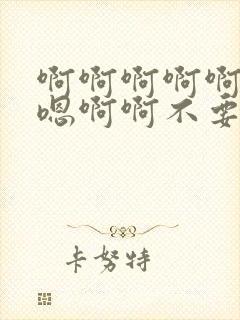 啊啊啊啊啊
嗯啊啊不要
卡努特